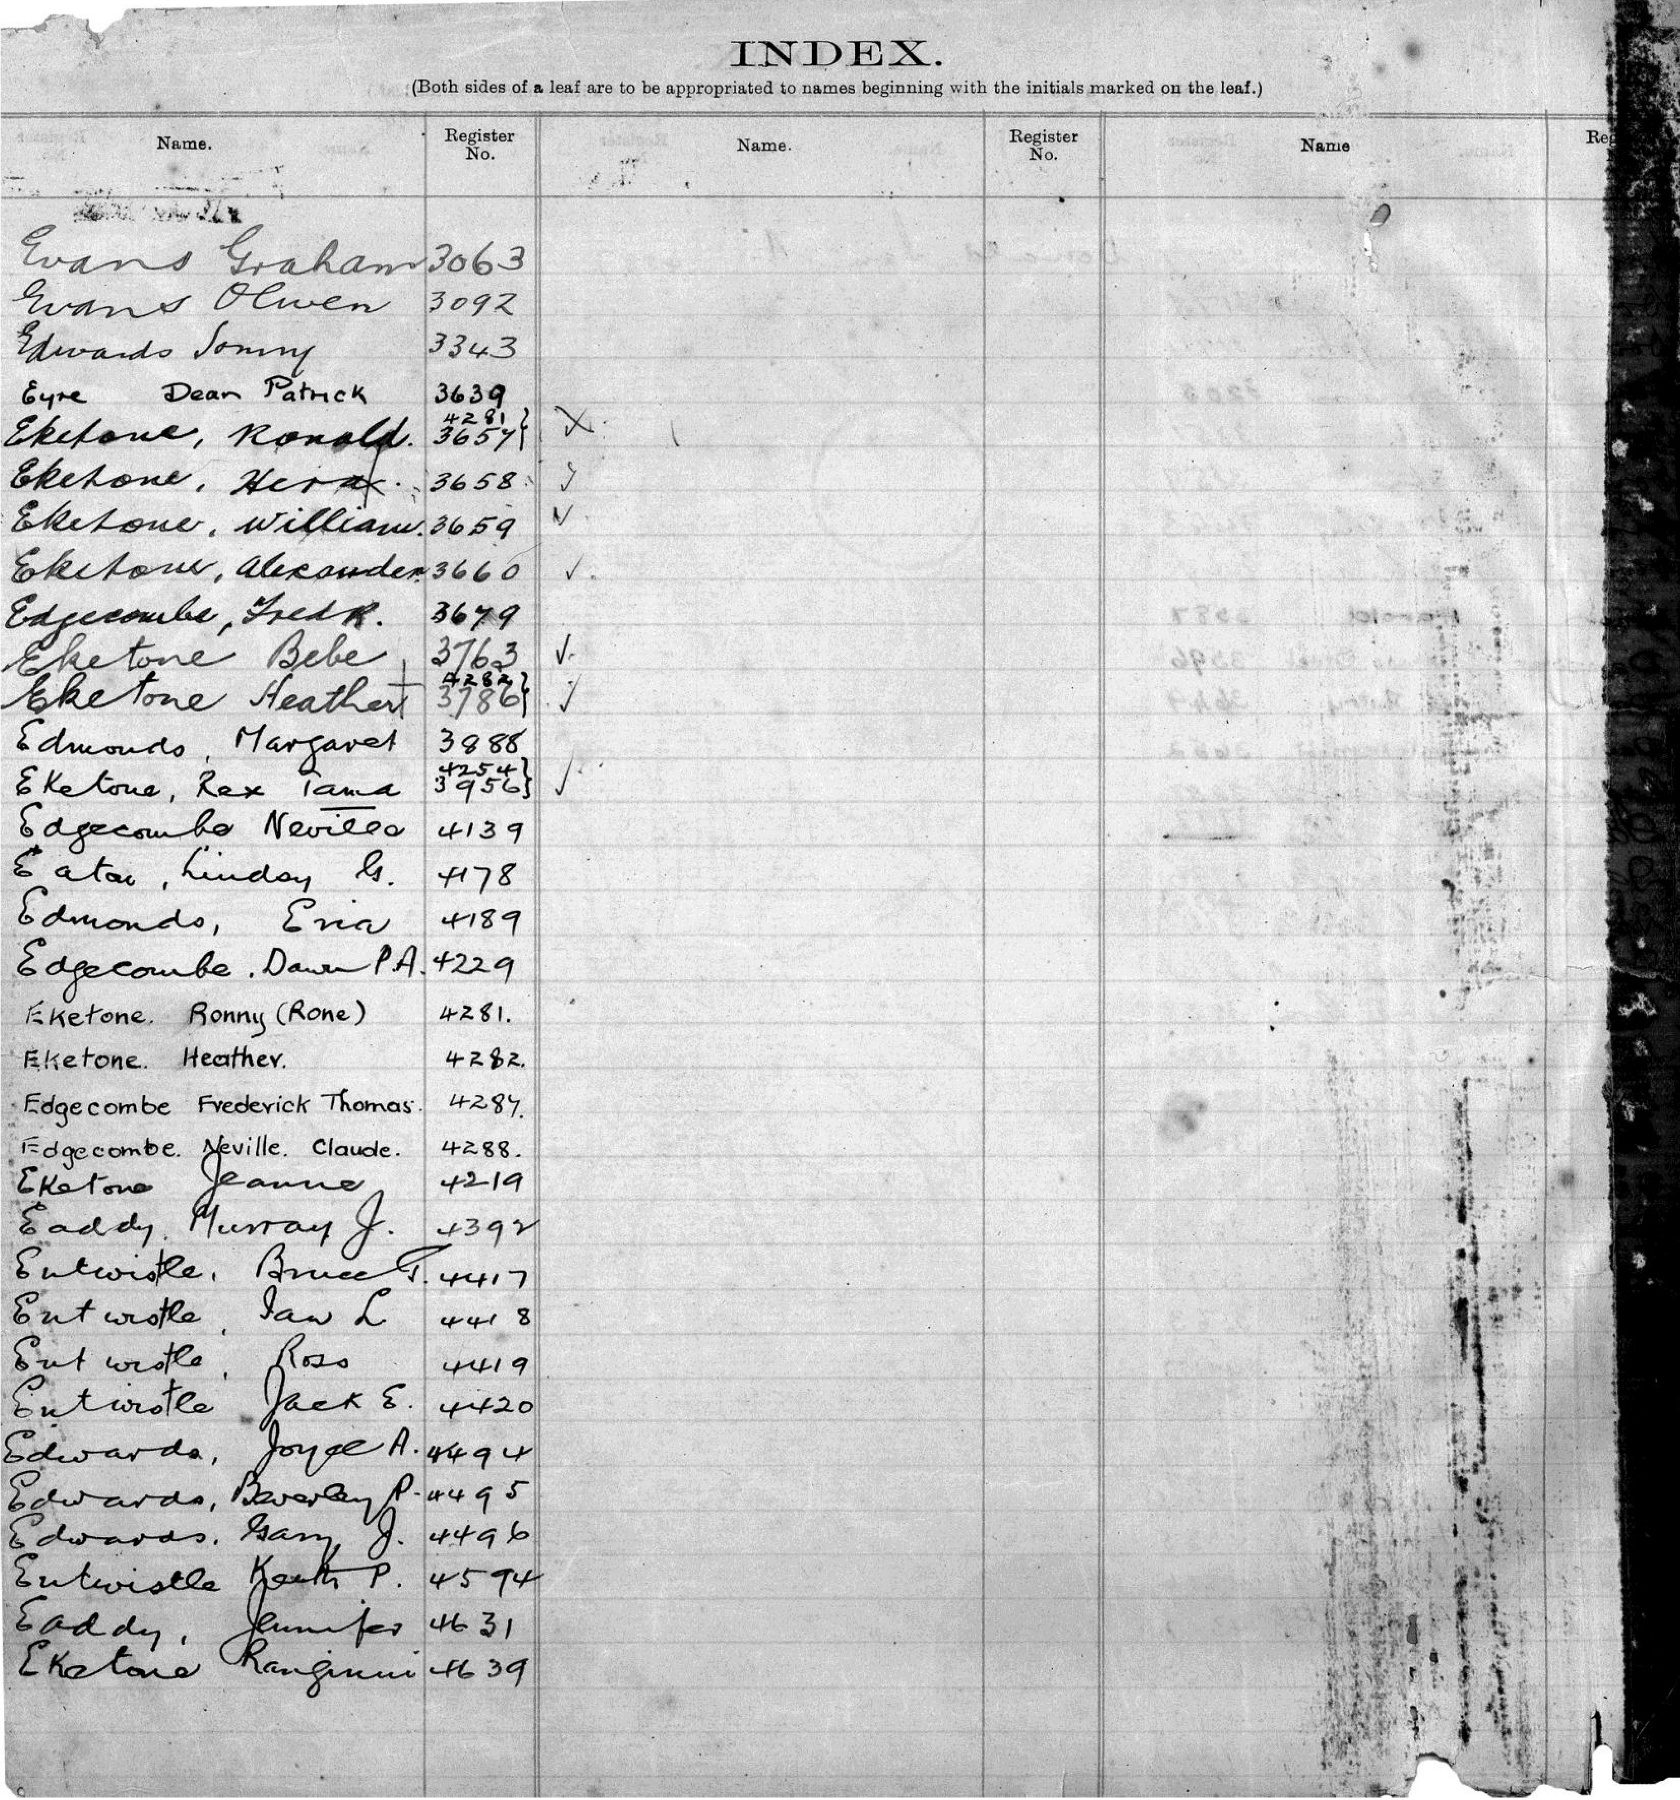 INDEX.
(Both sides of a leaf are to be appropriated to names beginning with the initials marked on the leaf.)
Name. Register No. Name. Register No. Name Reg
Evans Graham 3063
Evans Olwen 3092
Edwards Sonny 3343
Eyre Dean Patrick 3639
4281
Eketone, Ronald. 3657
Eketone, Hera. 3658
Eketone, William. 3659
Eketone, Alexander. 3660
Edgecombe, Fredk. 3679
Eketone Bebe 3763
4282
Eketone Heather 3786
Edmonds, Margaret 3888
4254
Eketone, Rex Tama 3956
Edgecombe Neville 4139
Eaton, Lindsay G. 4178
Edmonds, Eria 4189
Edgecombe, Dawn P.A. 4229
Eketone. Ronny (Rone) 4281.
Eketone. Heather. 4282.
Edgecombe Frederick Thomas. 4287.
Edgecombe. Neville. Claude. 4288.
Eketone Jeanne 4219
Eaddy, Murray J. 4392
Entwistle, Bruce T. 4417
Entwistle, Ian L 4418
Entwistle, Ross 4419
Entwistle Jack E. 4420
Edwards, Joyce A. 4494
Edwards, Beverley P. 4495
Edwards, Gary J. 4496
Entwistle Keith P. 4594
Eaddy, Jennifer 4631
Eketone Ranginui 4639